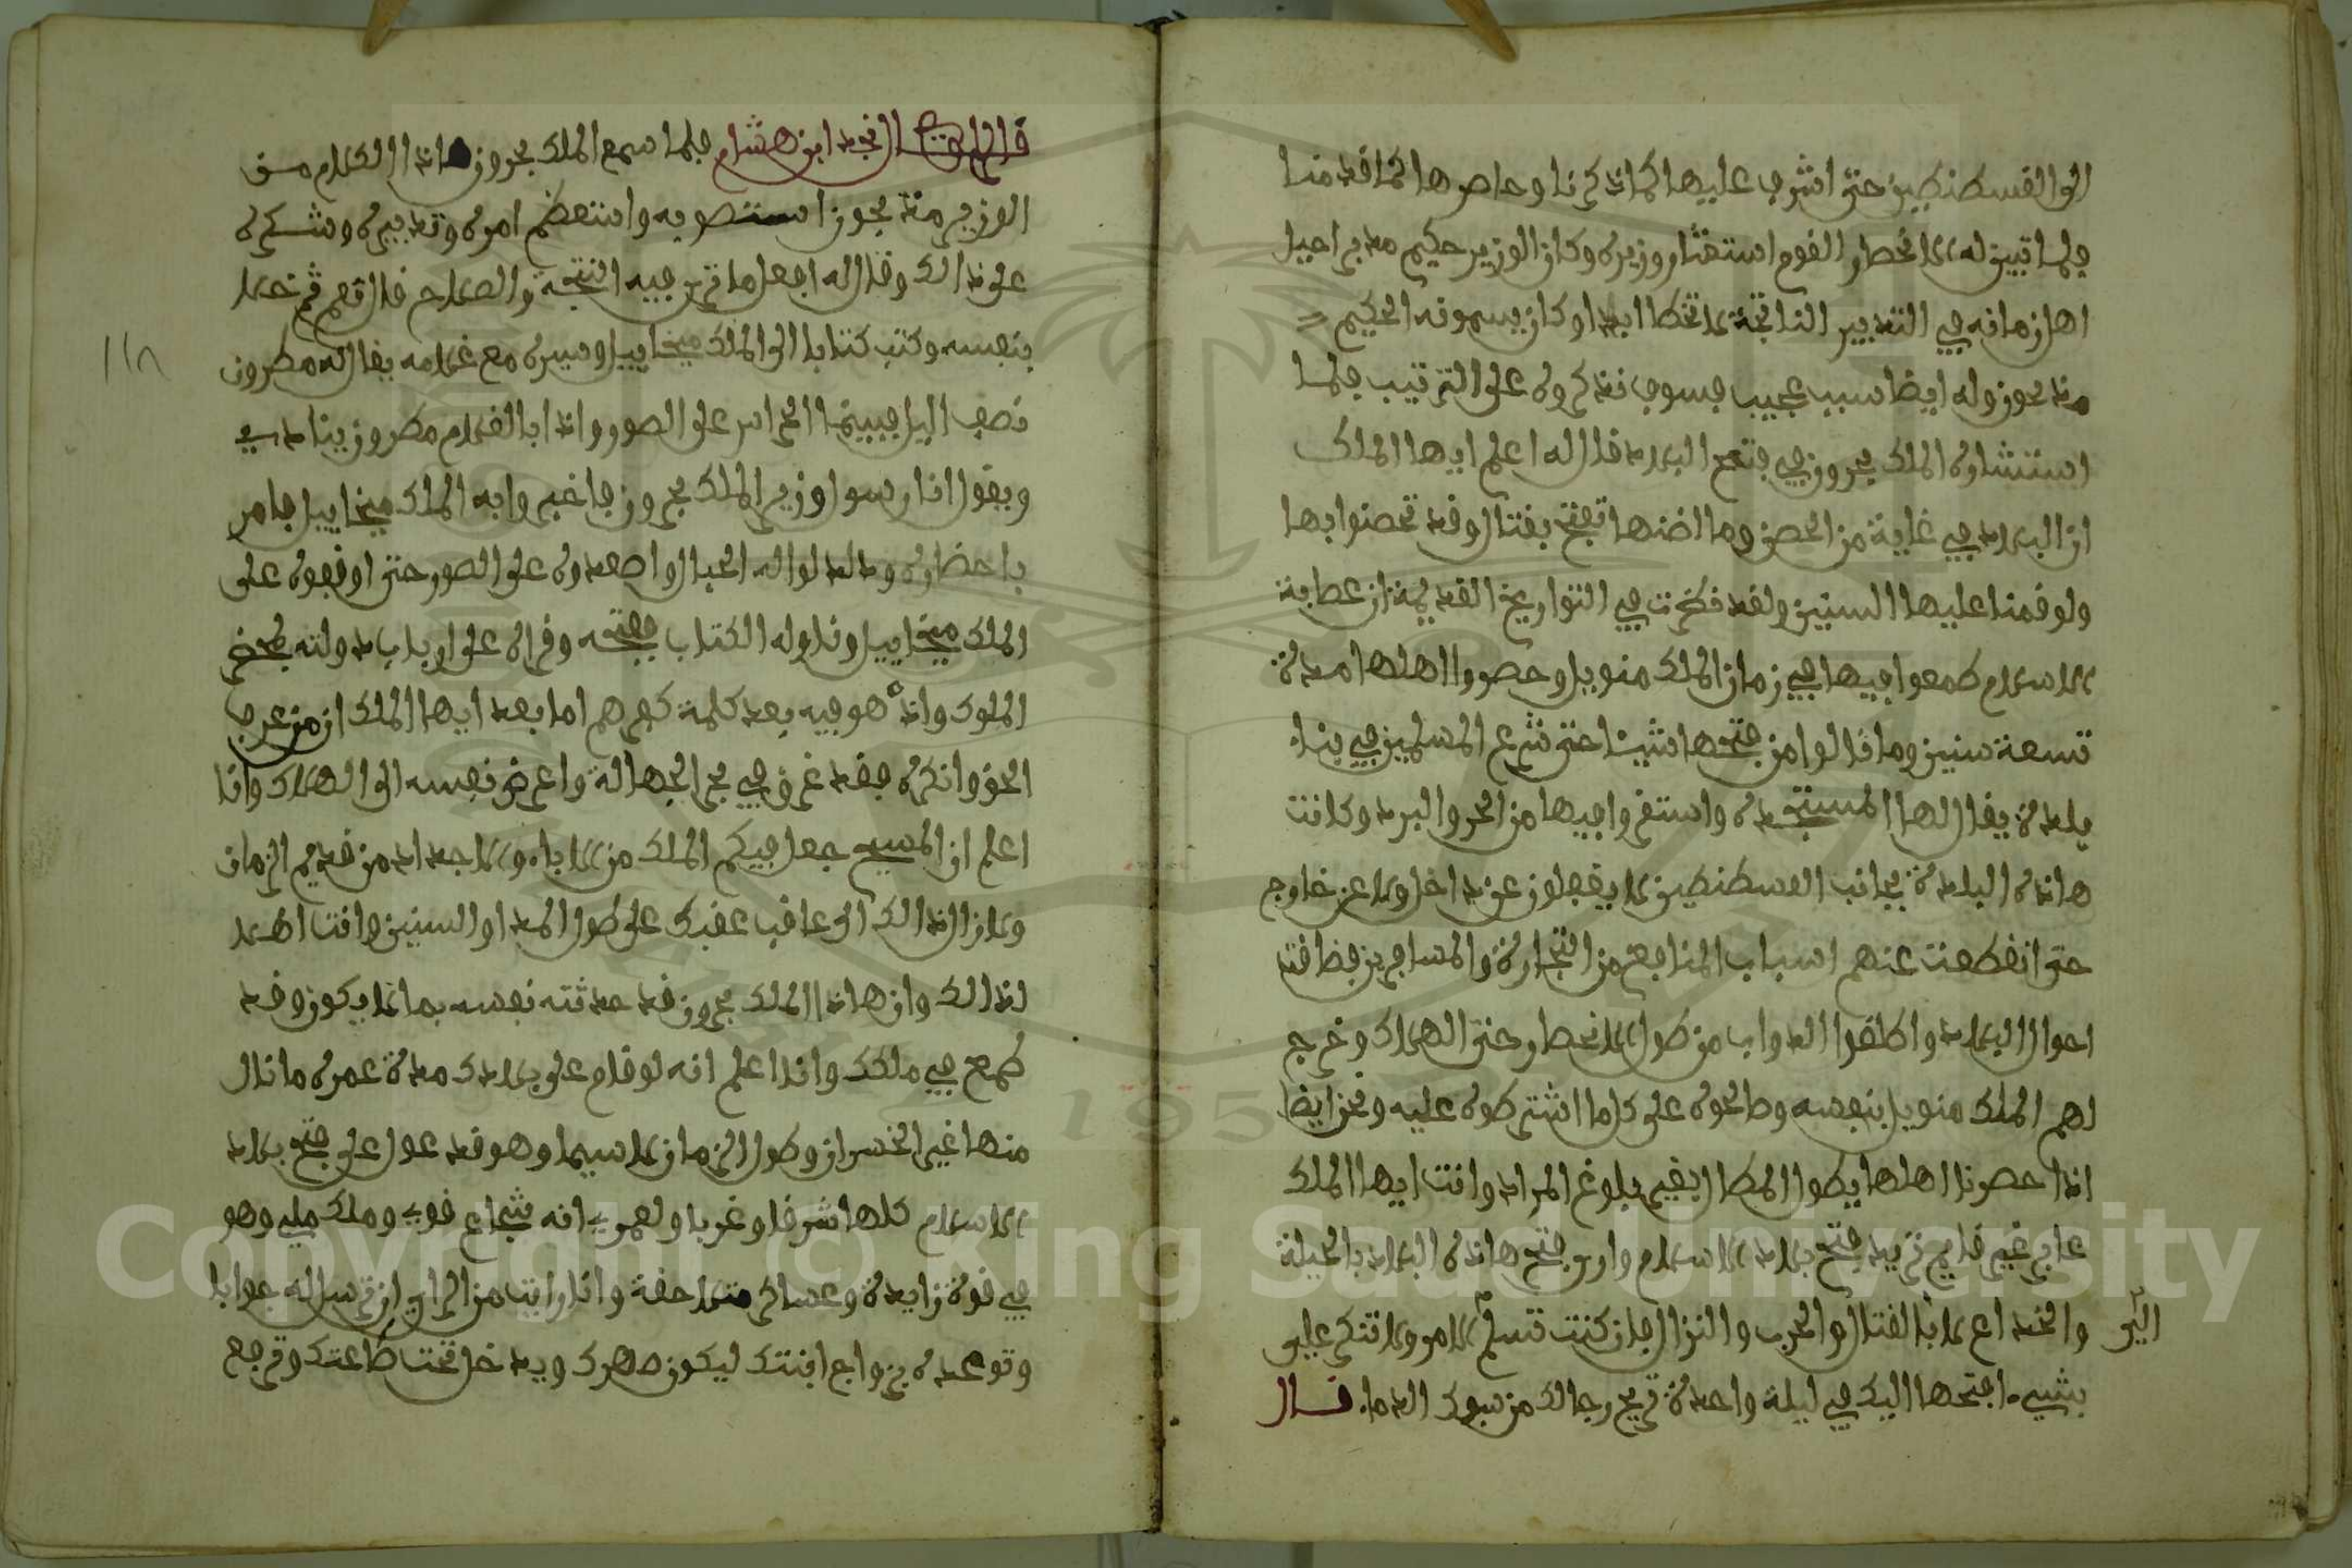 الى القسطنطين حتى اشرف عليها كما ذكرنا وحاصرها كما قدمنا
فلما تبين له الانحطار القوم استشار وزيره وكان الوزير حكيم مدبر احيل
اهل زمانه في التدبير الناتجة لا تخطا ابدا وكان يسمونه الحكيم
منذ لحوز وله ايضا سبب عجيب فسوف نذكروه على الترتيب فلما
استشاره الملك بحرون في فتح البلاد قال له اعلم ايها الملك
ان البلاد في غاية من الحصن وما اضنها تفتح بقتال وقد تحصنوا بها
ولو قمنا عليها السنين ولقد ذكرت في التواريخ القديمة ان عصابة
الاسلام طمعوا فيها في زمان الملك منويل وحصروا اهلها مدة
تسعة سنين وما نالوا من فتحها شيئا حتى شرع المسلمين في بناء
بلدة يقال لها المستجدة واستقروا فيها من الحر والبرد وكانت
هاذه البلدة بجانب القسطنطين لا يغفلون عن داخل ولا عن خارج
حتى انقطعت عنهم اسباب المنافع من التجارة والمسافرين فضاقت
احوال البلاد واطلقوا الدواب من طول الانحطار حتى الهلاك وخرج
لهم الملك منويل بنفسه وصالحوه على كل ما اشترطوه عليه ونحن ايضا
اذا حصرنا اهلها يطول المطال بغير بلوغ المراد وانت ايها الملك
عابر غير قايم تريد فتح بلاد الاسلام واريد فتح هاذه البلاد بالحيلة
والخداع لا بالقتال والحرب والنزال فان كنت تسلم الي الامر ولا تنكر علي
بشيء افتحها اليك في ليلة واحدة تريح رجالك من سفك الدماء قال
قال الراوي النجد ابن هشام فلما سمع الملك بحرون هاذا الكلام من
الوزير منذ لحوز استصوبه واستعظم امره وتدبيره وشكره
على ذالك وقال له افعل ما ترى فيه النتيجة والصلاح قال نعم ثم خلا
بنفسه وكتب كتابا الى الملك ميخاييل وسيره مع غلامه يقال له مطرون
نصف اليل فبينما الحراس على الصور واذا بالغلام مطرون ينادي
ويقول انا رسول وزير الملك بحرون فاخبروا به الملك ميخاييل فامر
باحضاره ودلدلوا له الحبال واصعدوه على الصور حتى اوقفوه على
الملك ميخاييل وناوله الكتاب ففتحه وقراه على ارباب دولته بمحضر
الملوك واذا هو فيه بعد كلمة كفرهم اما بعد ايها الملك ان من عرف
الحق وانكره فقد غرق في بحر الجهالة واعرض نفسه الى الهلاك وانا
اعلم ان المسيح جعل فيكم الملك من الاباء والاجداد من قديم الزمان
ولا زال ذالك الى عاقب عقبك على طول المدا والسنين وانت اهلا
لذالك وان هاذا الملك بحرون قد حدثته نفسه بما لا يكون وقد
طمع في ملكك وانا اعلم انه لو قام على بلادك مدة عمره ما نال
منها غير الخسران وطول الزمان لا سيما وهو قد عول على فتح بلاد
الاسلام كلها شرقا وغربا ولعمري انه شجاع قوي وملك ملي وهو
في قوة زايدة وعساكر متلاحقة وانا رايت من الراي ان ترسل له جوابا
وتوعده بزواج ابنتك ليكون صهرك ويدخل تحت طاعتك وترجع